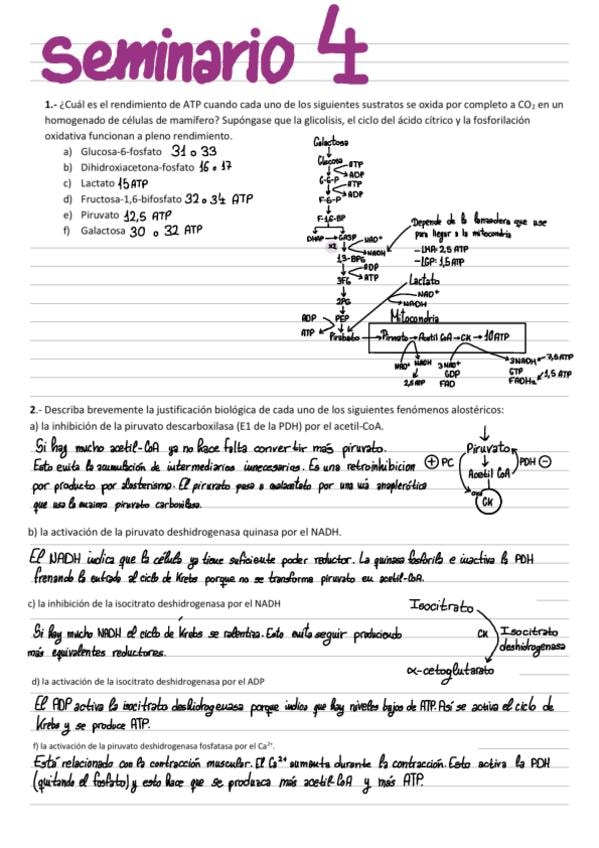 Seminario 4
1.- ¿Cuál es el rendimiento de ATP cuando cada uno de los siguientes sustratos se oxida por completo a CO₂ en un
homogenado de células de mamífero? Supóngase que la glicolisis, el ciclo del ácido cítrico y la fosforilación
oxidativa funcionan a pleno rendimiento.
a) Glucosa-6-fosfato 31 o 33
b) Dihidroxiacetona-fosfato 16 o 17
c) Lactato 15 ATP
d) Fructosa-1,6-bifosfato 32 o 34 ATP
e) Piruvato 12,5 ATP
f) Galactosa 30 o 32 ATP
Galactosa
Glucosa
ATP
ADP
G-6-P
ATP
ADP
F-6-P
F-1,6-BP
DHAP → GA3P
x2
NAD⁺
NADH
Depende de la lanzadera que use
para llegar a la mitocondria
-LMA: 2,5 ATP
-LGP: 1,5 ATP
1,3-BPG
ADP
ATP
3PG
2PG
PEP
ADP
ATP
Piruvato
Lactato
NAD⁺
NADH
Mitocondria
Piruvato → Acetil CoA → CK → 10 ATP
NAD⁺ NADH
2,5 ATP
3NAD⁺
GDP
FAD
3NADH → 7,5 ATP
GTP
FADH₂ 1,5 ATP
2.- Describa brevemente la justificación biológica de cada uno de los siguientes fenómenos alostéricos:
a) la inhibición de la piruvato descarboxilasa (E1 de la PDH) por el acetil-CoA.
Si hay mucho acetil-CoA ya no hace falta convertir más piruvato.
Esto evita la acumulación de intermediarios innecesarios. Es una retroinhibicion
por producto por alosterismo. El piruvato pasa a oxalacetato por una vía anaplerótica
que usa la enzima piruvato carboxilasa.
Piruvato
⊕ PC
PDH ⊖
Acetil CoA
CK
b) la activación de la piruvato deshidrogenasa quinasa por el NADH.
El NADH indica que la célula ya tiene suficiente poder reductor. La quinasa fosforila e inactiva la PDH
frenando la entrada al ciclo de Krebs porque no se transforma piruvato en acetil-CoA.
c) la inhibición de la isocitrato deshidrogenasa por el NADH
Si hay mucho NADH el ciclo de Krebs se ralentiza. Esto evita seguir produciendo
más equivalentes reductores.
Isocitrato
CK
Isocitrato
deshidrogenasa
α-cetoglutarato
d) la activación de la isocitrato deshidrogenasa por el ADP
El ADP activa la isocitrato deshidrogenasa porque indica que hay niveles bajos de ATP. Así se activa el ciclo de
Krebs y se produce ATP.
f) la activación de la piruvato deshidrogenasa fosfatasa por el Ca²⁺.
Está relacionado con la contracción muscular. El Ca²⁺ aumenta durante la contracción. Esto activa la PDH
(quitando el fosfato) y esto hace que se produzca más acetil-CoA y más ATP.